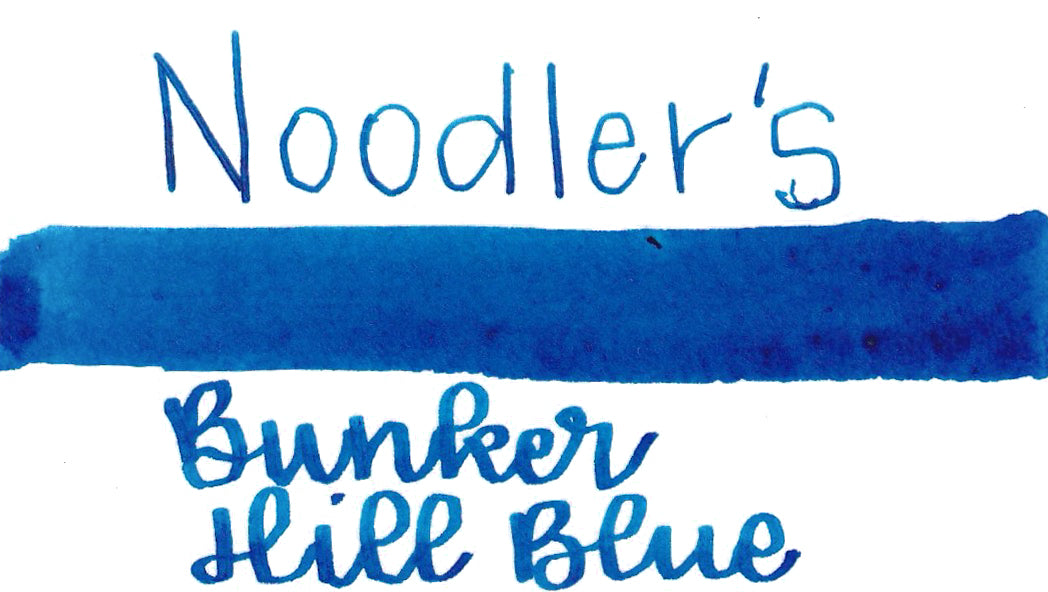 Noodler's
Bunker
Hill Blue